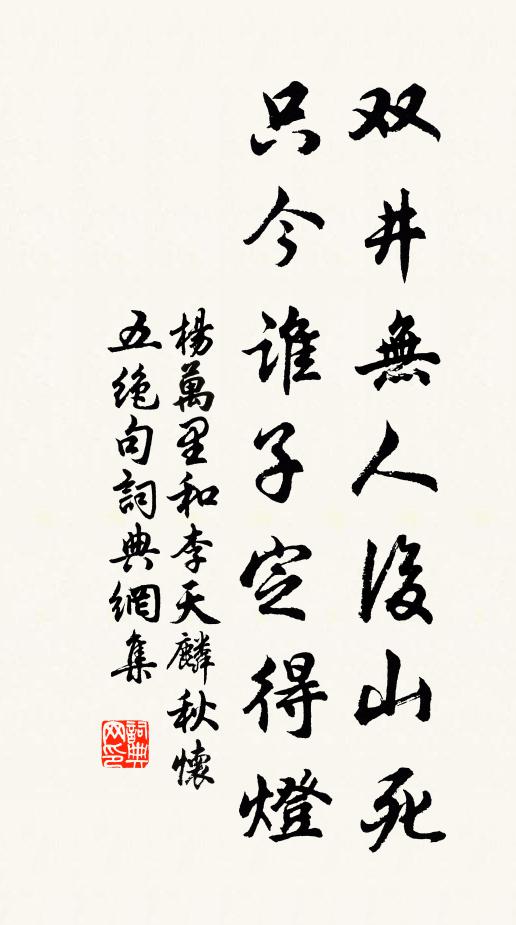 双井無人後山死
只今誰子定得燈
楊萬里和李天麟秋懷
五絶句詞典網集
詞典
网印